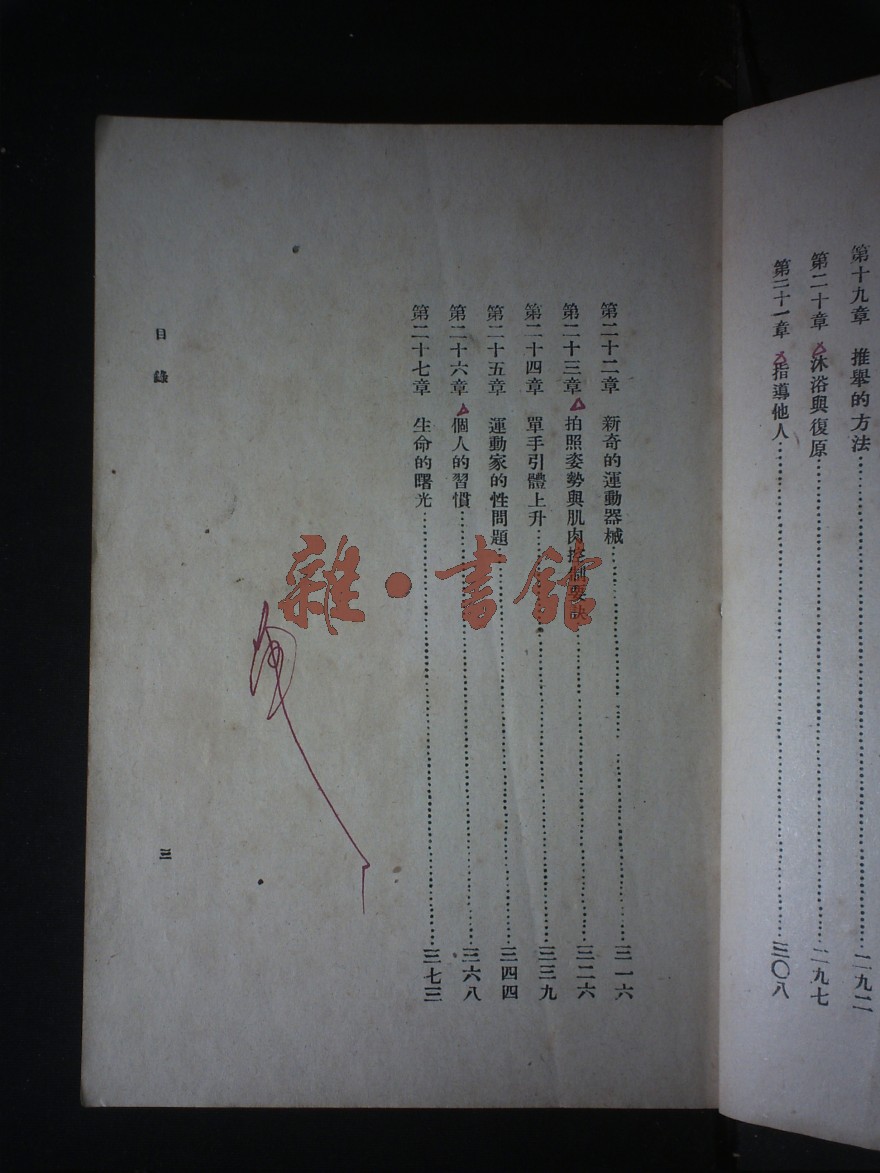 第十九章 推舉的方法……二九二
第二十章 沐浴與復原……二九七
第二十一章 指導他人……三〇八
第二十二章 新奇的運動器械……三一六
第二十三章 拍照姿勢與肌肉控制要訣……三二六
第二十四章 單手引體上升……三三九
第二十五章 運動家的性問題……三四四
第二十六章 個人的習慣……三六八
第二十七章 生命的曙光……三七三
目錄
三
雜·書館